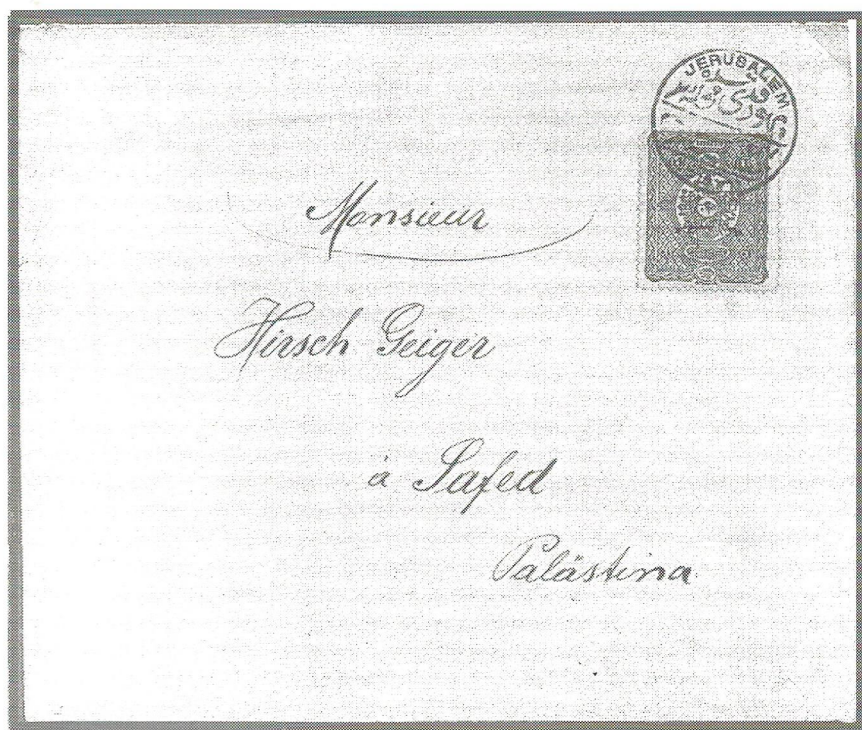 JERUSALIEM
Monsieur
Hirsch Geiger
à Safed
Palästina